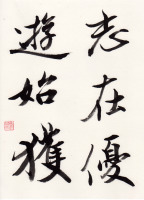 志在優
遊始獲